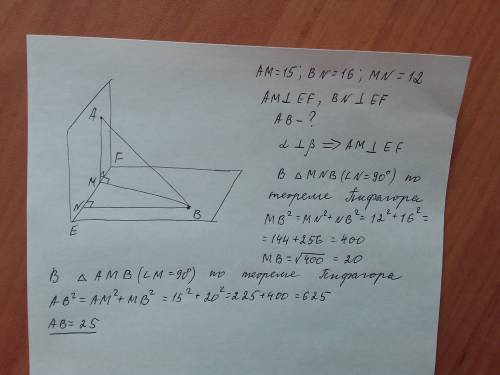 AM=15; BN=16; MN=12
AM⊥EF, BN⊥EF
AB-?
α⊥β ⇒ AM⊥EF
В △MNB (∠N=90°) по
теореме Пифагора
MB²=MN²+NB²=12²+16²=
=144+256=400
MB=√400=20
A
F
M
N
B
E
В △AMB (∠M=90°) по теореме Пифагора
AB²=AM²+MB²=15²+20²=225+400=625
AB=25